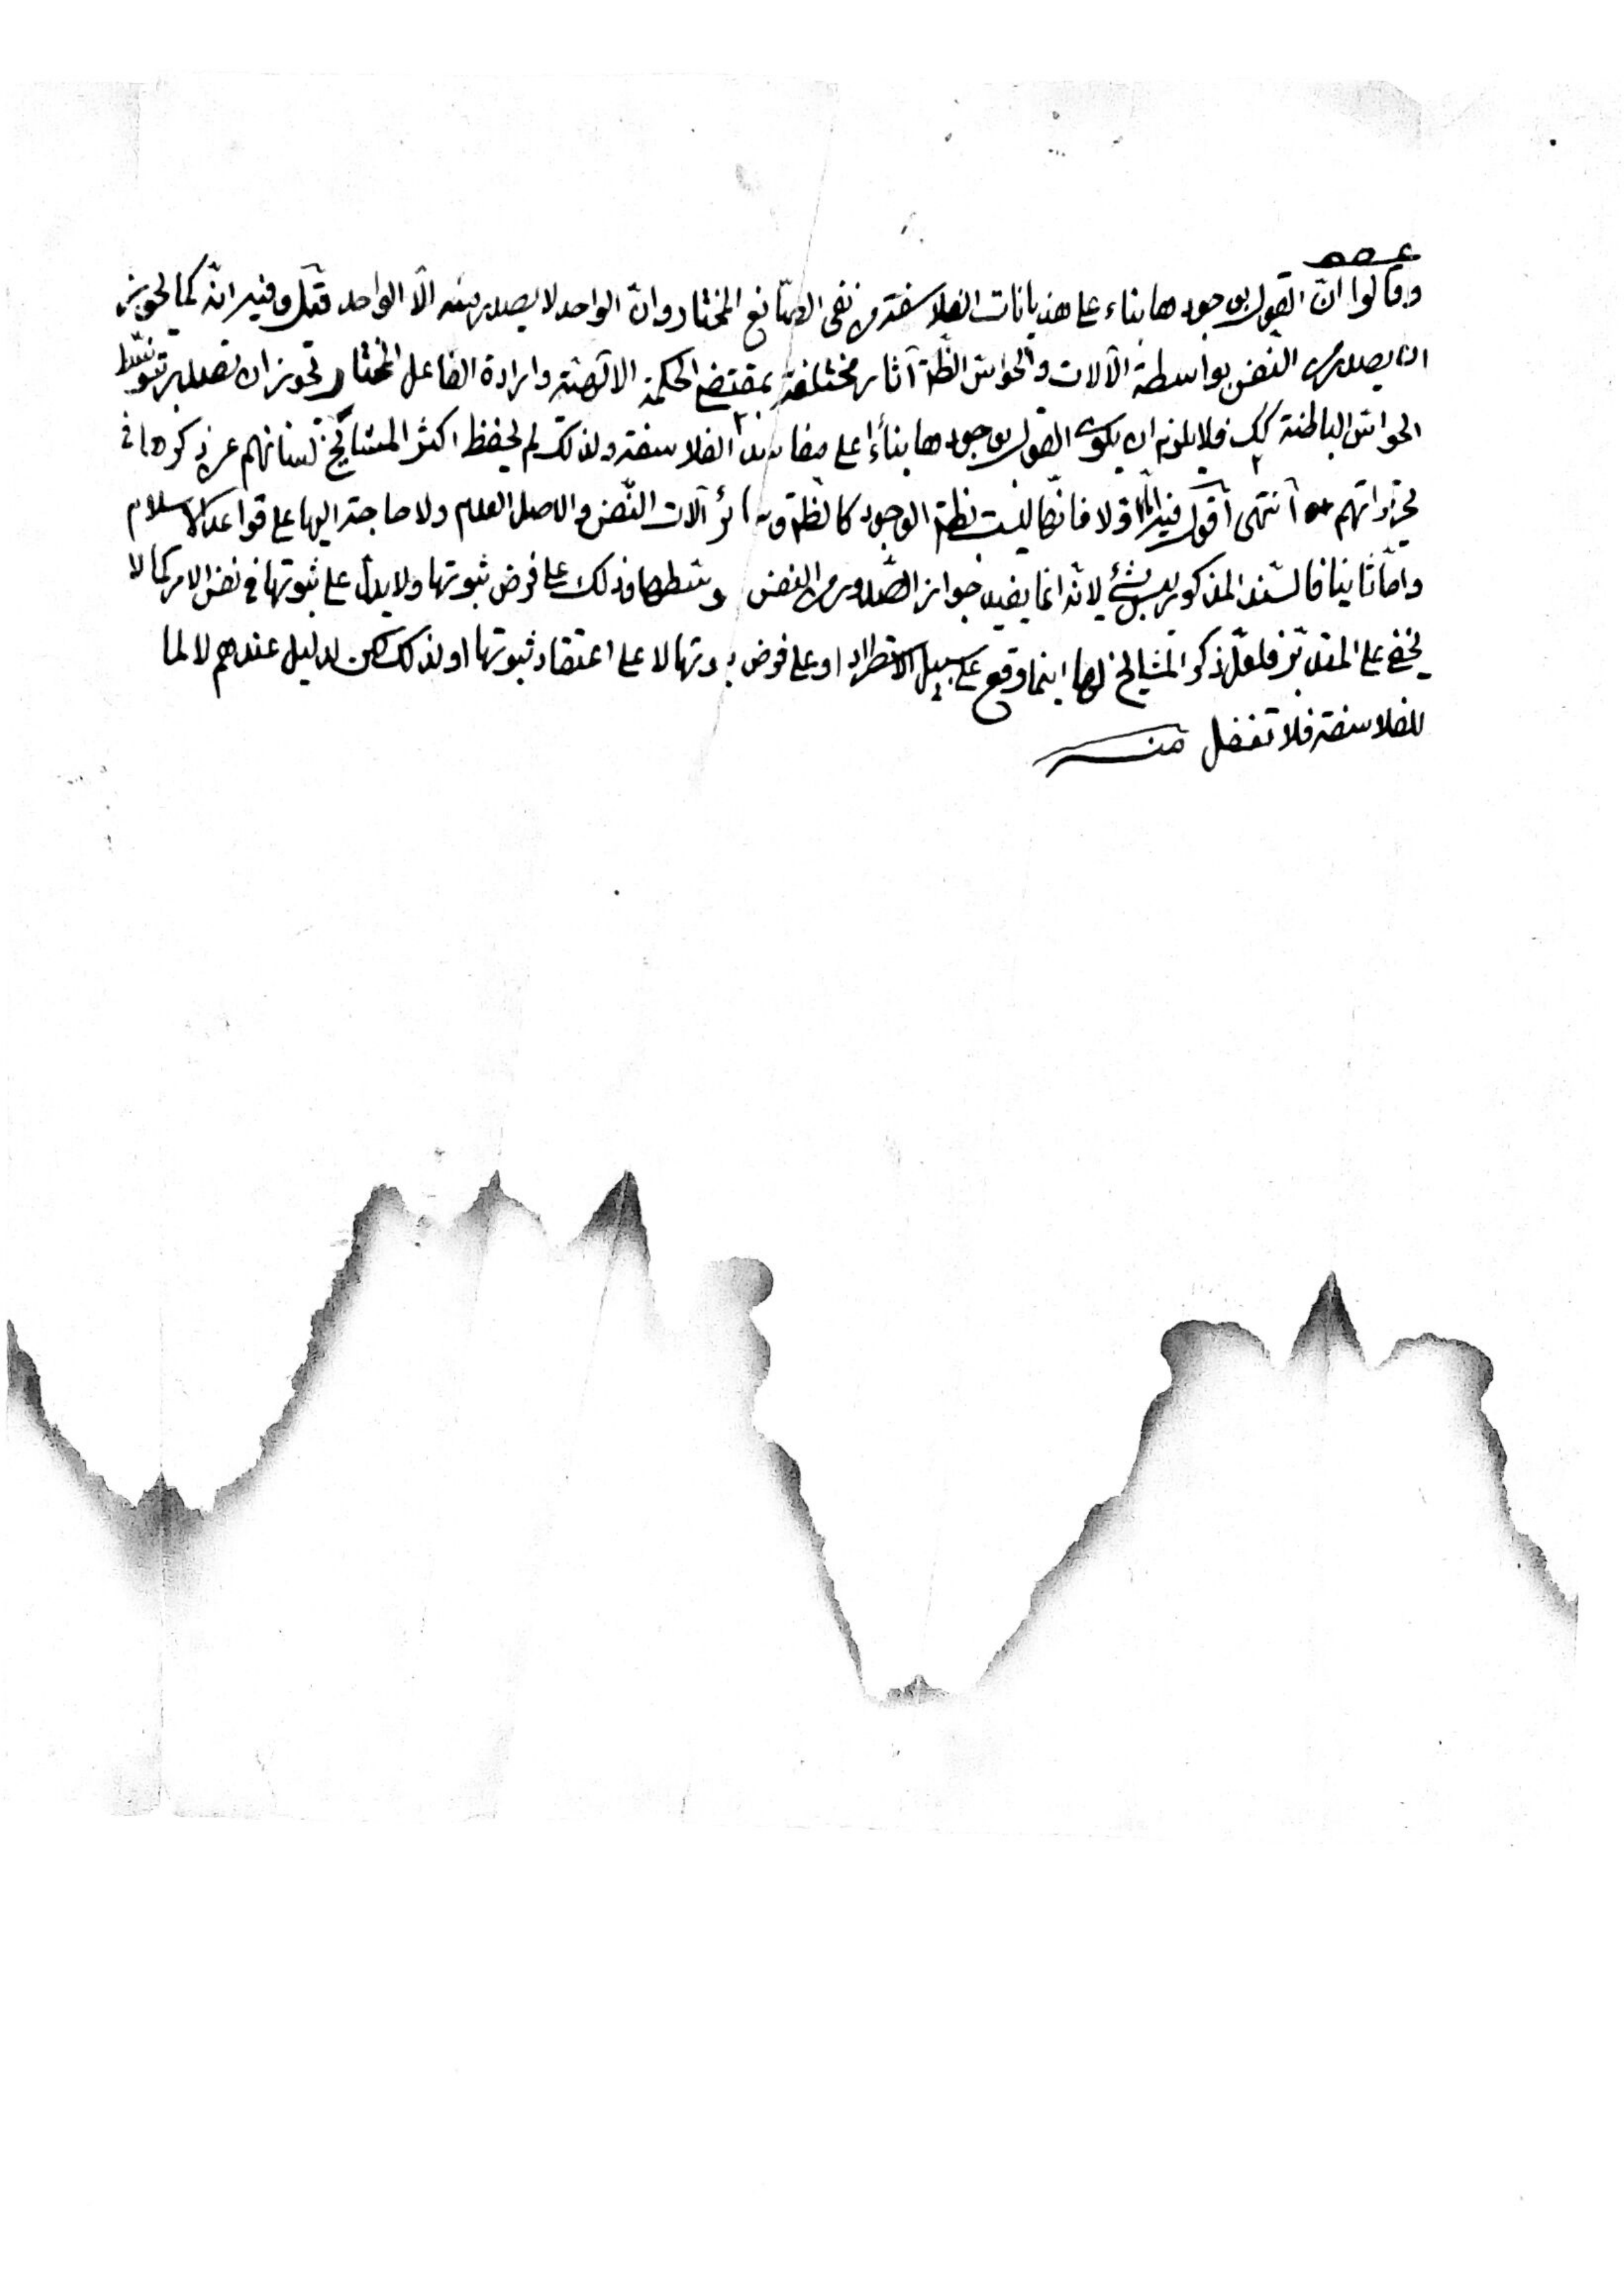 وقالوا انّ القول بوجودها بناء على هذيانات الفلاسفة من نفى الصّانع المختار وانّ الواحد لا يصدر منه الّا الواحد قيل وفيه انّه كما يجوز
ان يصدر من النفس بواسطة الآلات والحواسّ الظّ آثار مختلفة بمقتضى الحكمة الالٓهيّة وارادة الفاعل المختار يجوز ان تصدر بتوسّط
الحواسّ الباطنة كك فلا يلزم ان يكون القول بوجودها بناءً على مفاسد الفلاسفة ولذلك لم يحفظ اكثر المشايخ لسانهم عن ذكرها فى
انتهى اقول فيه امّا اوّلا فانّها ليست بظ الوجود كالظّ وسائر آلات النّفس والاصل العدم ولا حاجة اليها على قواعد الاسلام
وامّا ثانيا فالسّند المذكور ليس بشئ لانّه انما يفيد جواز الصّدور من النفس وذلك على فرض ثبوتها ولا يدلّ على ثبوتها فى نفس الامر كما لا
يخفى على المتدبّر فلعلّ ذكر المشايخ لها اينما وقع على سبيل الاستطراد او على فرض ثبوتها لا على اعتقاد ثبوتها او لذلك لكن لدليل عندهم لا لما
للفلاسفة فلا تغفل منه